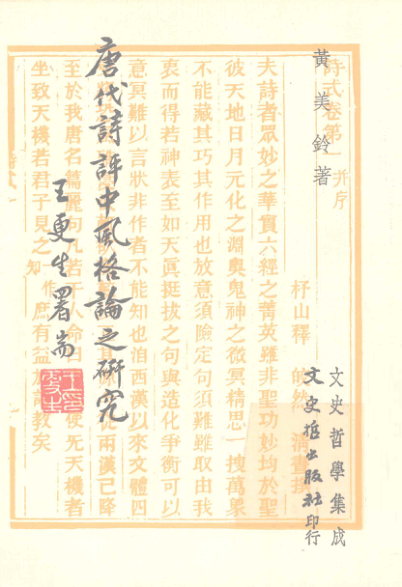 黃美鈴著
唐代詩評中風格論之研究
王更生署耑
文史哲學集成
文史哲出版社印行
詩式卷第一 并序
杼山釋
夫詩者眾妙之華實六經之菁英雖非聖功妙均於聖
彼天地日月元化之淵奧鬼神之微冥精思一搜萬象
不能藏其巧其作用也放意須險定句須難雖取由我
衷而得若神表至如天真挺拔之句與造化爭衡可以
意冥難以言狀非作者不能知也洎西漢以來文體四
兩漢已降
至於我唐名篇麗句凡若干人命
使无天機者
坐致天機若君子見之
庶有益
教矣